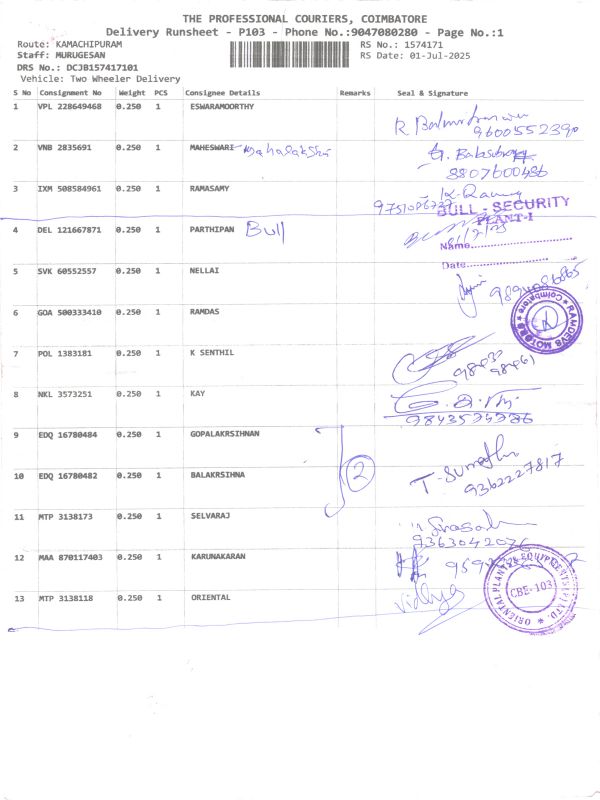 THE PROFESSIONAL COURIERS, COIMBATORE
Delivery Runsheet - P103 - Phone No.:9047080280 - Page No.:1
Route: KAMACHIPURAM RS No.: 1574171
Staff: MURUGESAN RS Date: 01-Jul-2025
DRS No.: DCJB157417101
Vehicle: Two Wheeler Delivery
S No Consignment No Weight PCS Consignee Details Remarks Seal & Signature
1 VPL 228649468 0.250 1 ESWARAMOORTHY
9600552390
2 VNB 2835691 0.250 1 MAHESWARI Mahalakshmi
8807600486
3 IXM 508584961 0.250 1 RAMASAMY
BULL - SECURITY
PLANT-I
4 DEL 121667871 0.250 1 PARTHIPAN Bull
Name
Date
5 SVK 60552557 0.250 1 NELLAI
6 GOA 500333410 0.250 1 RAMDAS
RAMDEVS MOTORS * Coimbatore *
7 POL 1383181 0.250 1 K SENTHIL
8 NKL 3573251 0.250 1 KAY
9 EDQ 16780484 0.250 1 GOPALAKRSIHNAN
2
10 EDQ 16780482 0.250 1 BALAKRSIHNA
T. Sumathi
9362227817
11 MTP 3138173 0.250 1 SELVARAJ
9363042076
12 MAA 870117403 0.250 1 KARUNAKARAN
13 MTP 3138118 0.250 1 ORIENTAL
Vidhya
ORIENTAL PLANT & EQUIPMENTS (P) LTD.
CBE-103